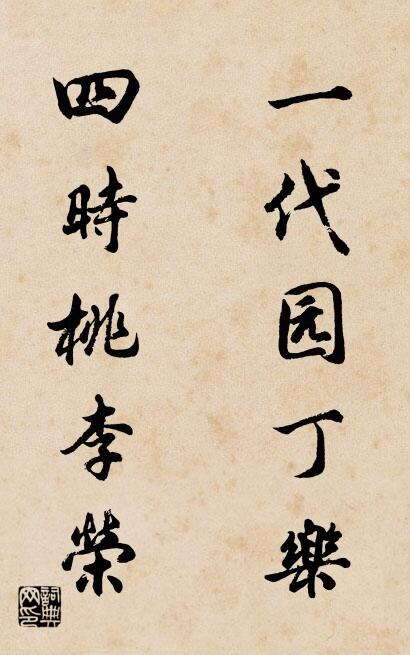 一代园丁樂
四時桃李榮
詞典網印